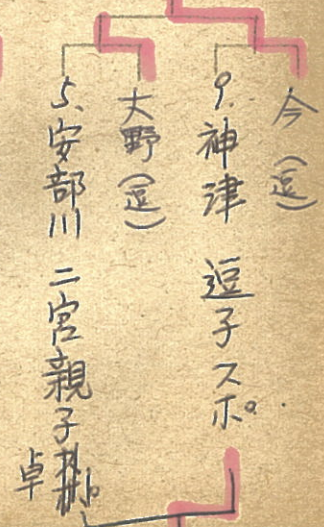 今(逗)
9.神津 逗子スポ。
大野(逗)
5.安部川 二宮親子
卓